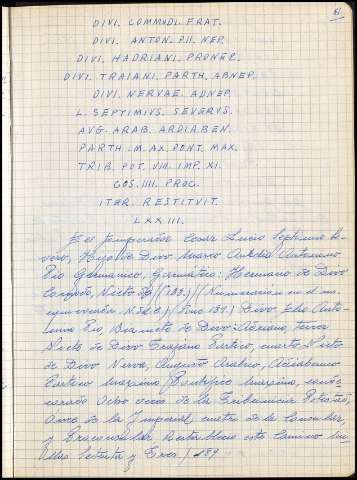 61
DIVI. COMMODI. FRAT.
DIVI. ANTON. PII. NEP.
DIVI. HADRIANI. PRONEP.
DIVI. TRAIANI. PARTH. ABNEP.
DIVI. NERVAE. ADNEP.
L. SEPTIMIVS. SEVERVS.
AVG. ARAB. ARDIABEN.
PARTH. M. AX. PONT. MAX.
TRIB. POT. VIII. IMP. XI.
COS. IIII. PROC.
ITER. RESTITVIT.
LXXIII.
El emperador Cesar Lucio Septimio Se-
vero, Hijo de Divo Marco Antonino
Pio Germanico, Sarmatico: Hermano de Divo
Comodo, Nieto de (183.) (Numeracion en el ma-
nuscrito (Fono 184.) Divo, Anto-
nino Pio, Bisnieto de Divo Adriano, tercer
Nieto de Divo Trajano Partico, cuarto Nieto
de Divo Nerva, Augusto Arabico, Adiabenico
Partico Maximo, Pontifice Maximo,
Ocho veces de la Tribunicia Potestad,
Once de la Imperial, cuatro de la Consular,
y Proconsular, Restableció este camino
Millas Setenta y Tres. / 189